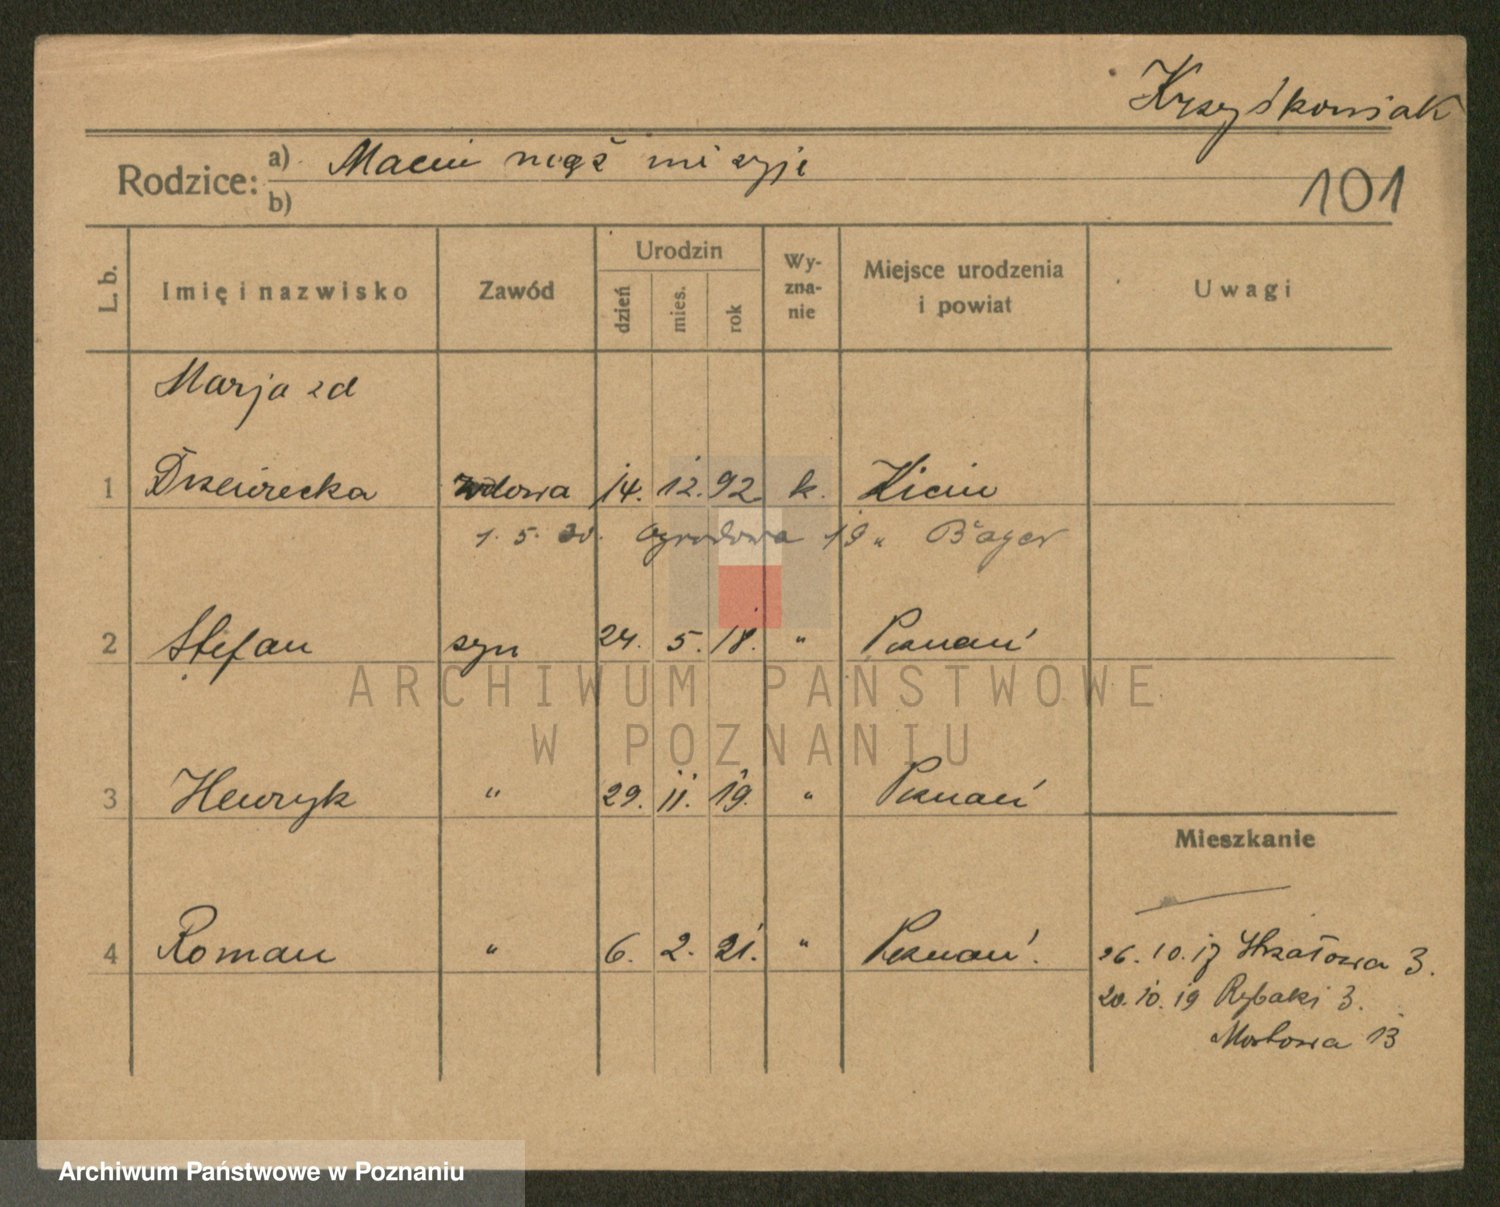 Krzyśkowiak
Rodzice: a) Marcin mąż nie żyje
b)
101
L. b.
Imię i nazwisko
Zawód
Urodzin
dzień
mies.
rok
Wy-
zna-
nie
Miejsce urodzenia
i powiat
Uwagi
Marja zd
1 Drzewiecka wdowa 14. 12. 92 k. Kicin
1. 5. 30. Ogrodowa 19 " Bager
2 Stefan syn 24. 5. 18. " Poznań
ARCHIWUM PAŃSTWOWE
W POZNANIU
3 Henryk " 29. 11. 19. " Poznań
Mieszkanie
4 Roman " 6. 2. 21. " Poznań.
26. 10. 17 Strzałowa 3.
20. 10. 19 Rybaki 3.
Mostowa 13
Archiwum Państwowe w Poznaniu